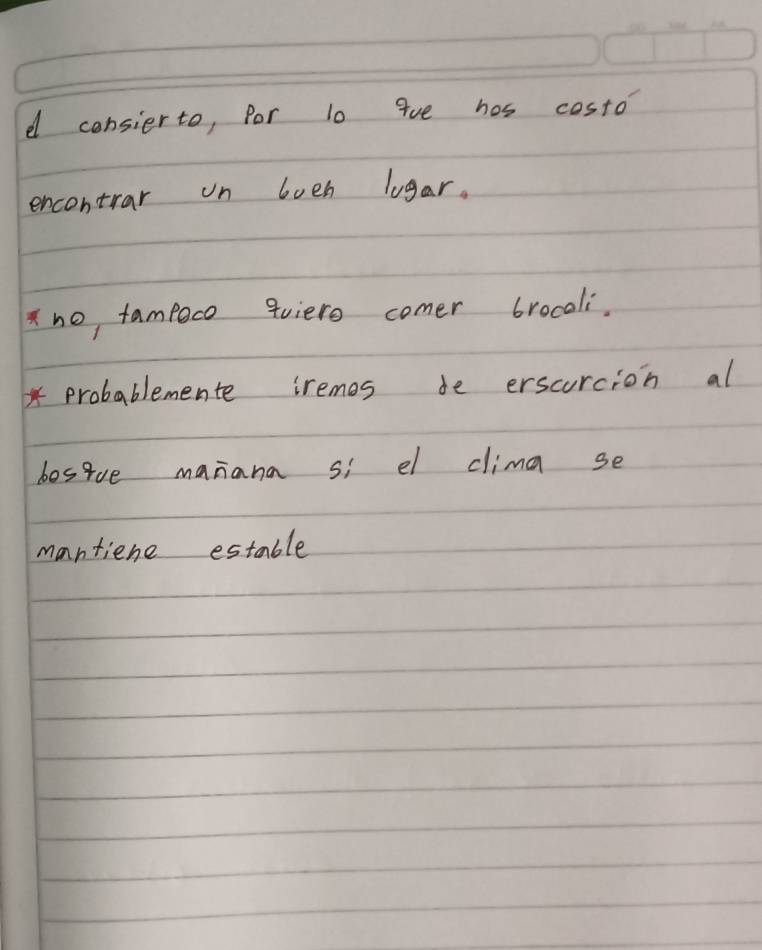 el consierto, Por lo que nos costó
encontrar un buen lugar.
* no, tampoco quiero comer brocoli.
* probablemente iremos de erscurción al
bosque mañana si el clima se
mantiene estable